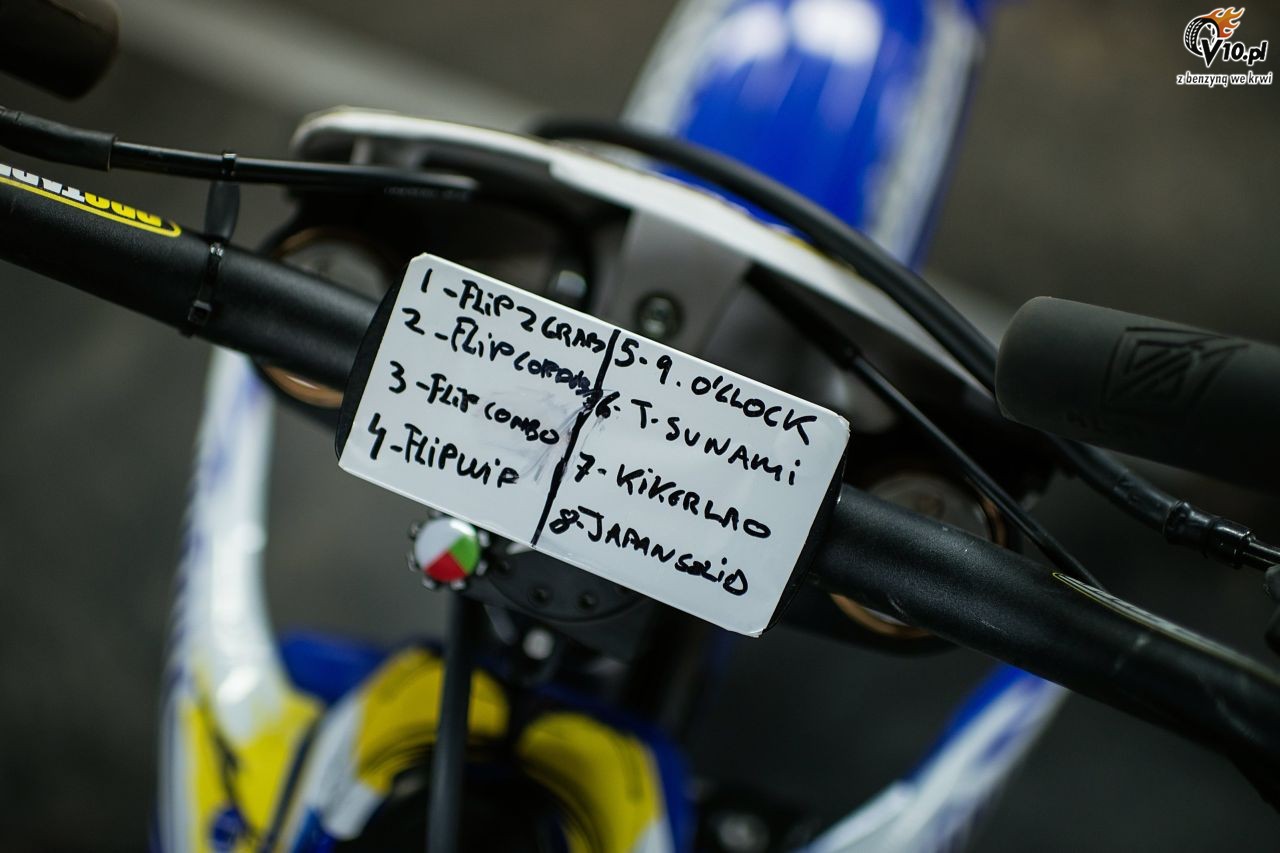 V10.pl
z benzyną we krwi
1 - FLiP 2 GRAB
2 - FLiP CORDOVA
3 - FLiP COMBO
4 - FLiP WiP
5 - 9. O'CLOCK
6 - T-SUNAMi
7 - KiKERLAO
8 - JAPAN SOLiD